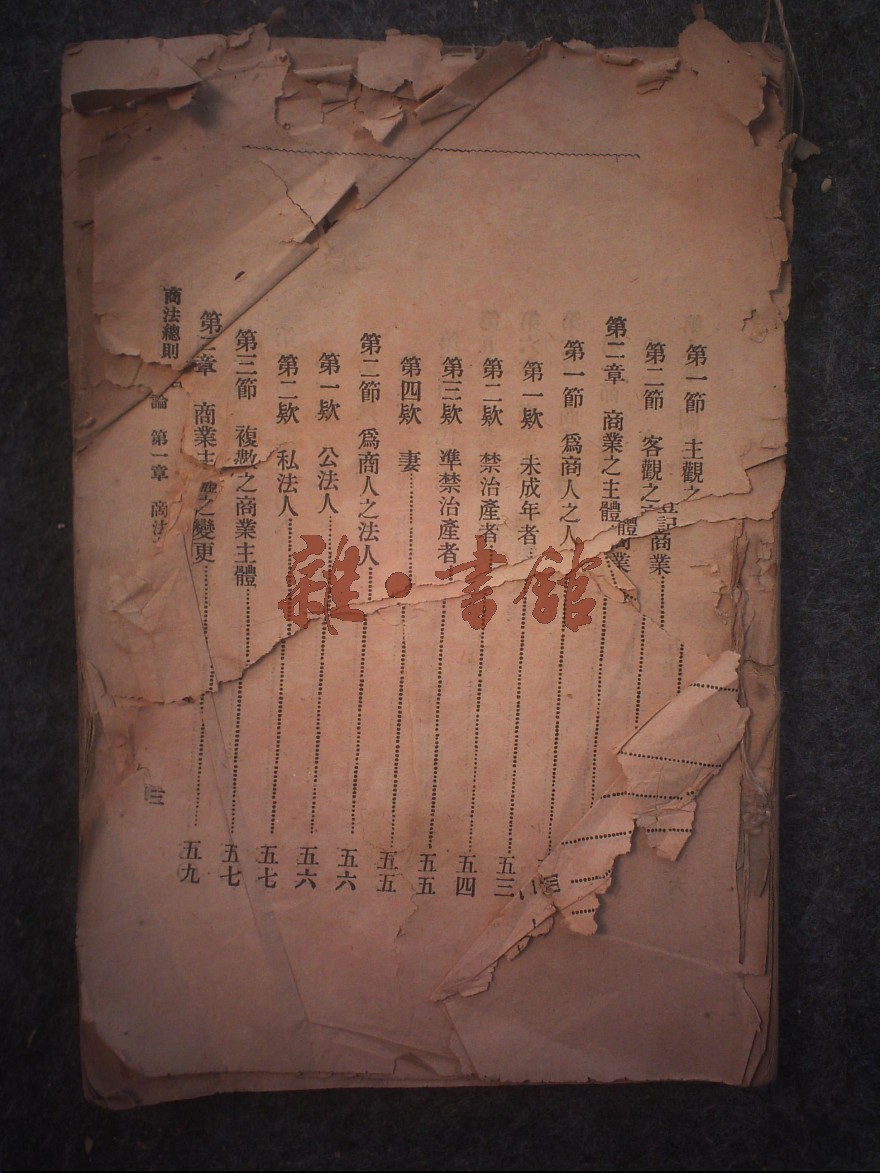 第一節 主觀之
第二節 客觀之 登記商業
第二章 商業之主體
體商業
第一節 爲商人之人
第一欵 未成年者 五三
第二欵 禁治產者 五四
第三欵 準禁治產者 五五
第四欵 妻 五五
第二節 爲商人之法人 五六
第一欵 公法人 五六
第二欵 私法人 五七
第三節 複數之商業主體 五七
第三章 商業主體之變更 五九
商法總則 論 第一章 商法 三
雜·書館